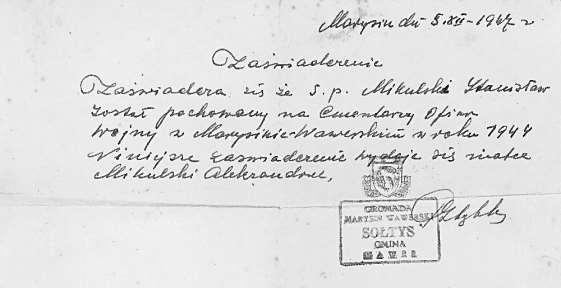 Marysin dn 5.XII-1947 r
Zaświadczenie
Zaświadcza się że ś.p. Mikulski Stanisław
został pochowany na Cmentarzu Ofiar
Wojny w Marysinie-Wawerskim w roku 1944
Niniejsze zaświadczenie wydaje się matce
Mikulski Aleksandrze,
GROMADA
MARYSIN WAWERSKI
SOŁTYS
GMINA
WAWER